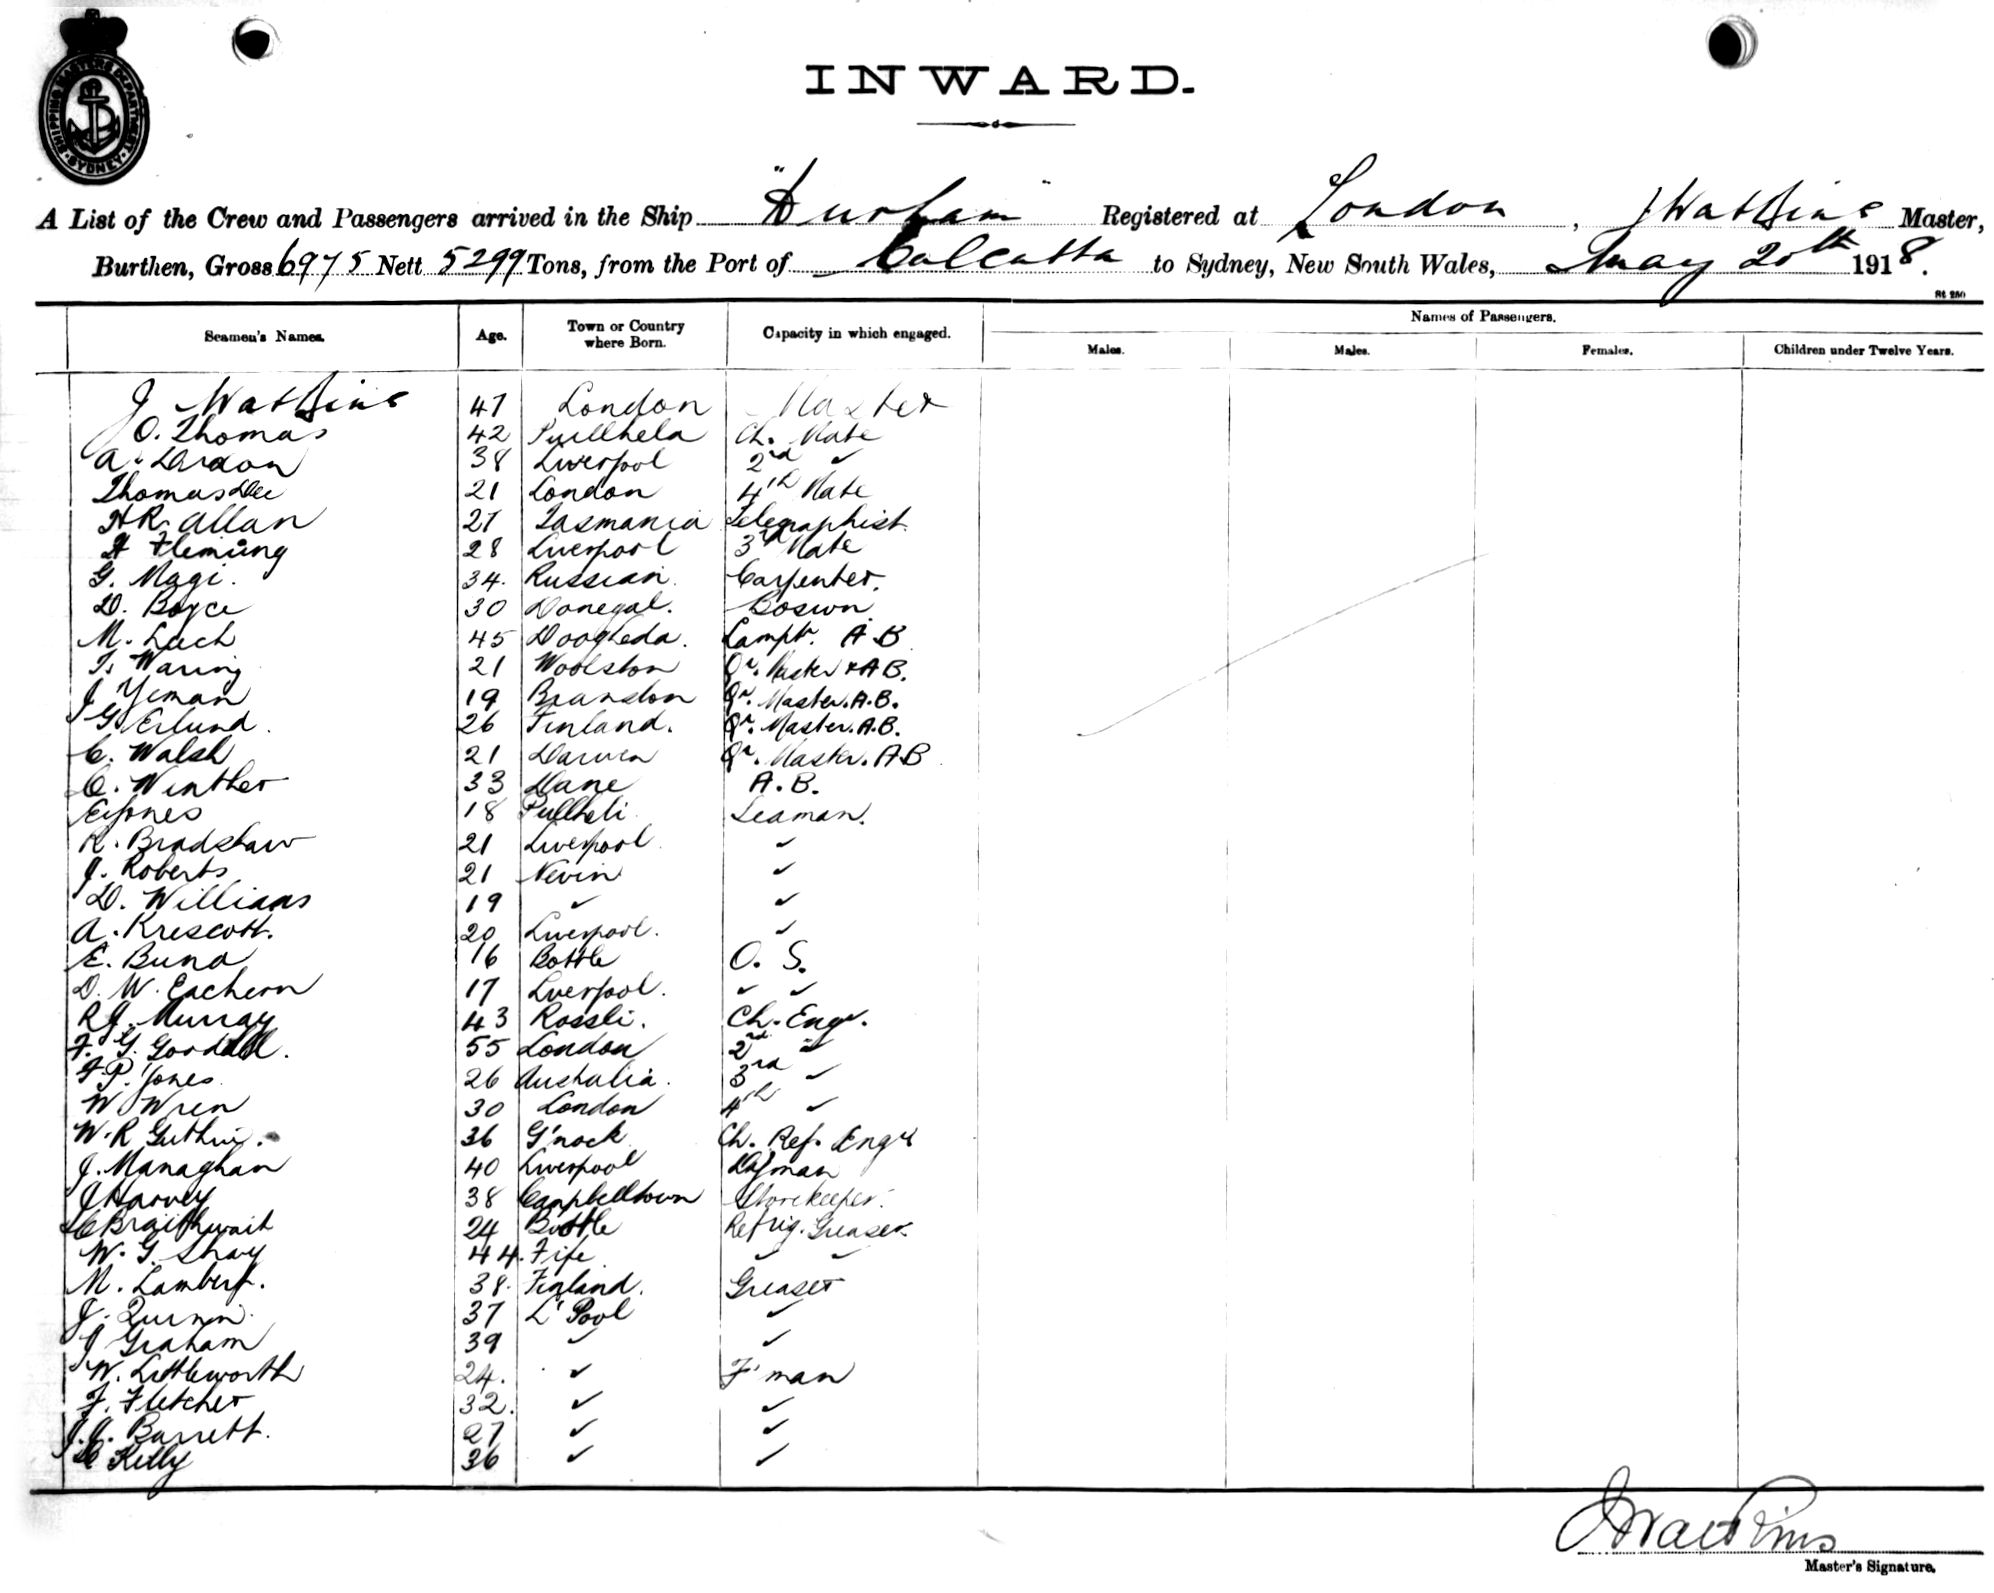 SHIPPING MASTERS DEPARTMENT
SYDNEY
INWARD.
A List of the Crew and Passengers arrived in the Ship "Durham" Registered at London, J Watkins Master,
Burthen, Gross 6975 Nett 5299 Tons, from the Port of Calcutta to Sydney, New South Wales, May 20th 1918.
St 250
Seamen's Names. Age. Town or Country where Born. Capacity in which engaged. Names of Passengers.
Males. Males. Females. Children under Twelve Years.
J Watkins 47 London Master
O. Thomas 42 Pwllhela Ch. Mate
A. 38 Liverpool 2nd "
Thomas Lee 21 London 4th Mate
H R. Allan 27 Tasmania Telegraphist.
H Fleming 28 Liverpool 3rd Mate
G. Magi. 34. Russian. Carpenter.
D. Boyce 30 Donegal. Boswn.
M. Luch 45 Drogheda. Lamptr. A.B
T. Waring 21 Woolston Qr. Master & A B.
J Yeman 19 Brandon Qr. Master. A.B.
G Erlund. 26 Finland. Qr. Master. A.B.
C. Walsh 21 Darwen Qr. Master. A B
C. Winther 33 Dane A. B.
E Jones 18 Pullheli Seaman.
R. Bradshaw 21 Liverpool "
J. Roberts 21 Nevin "
D. Williams 19 " "
A. Krescott. 20 Liverpool. "
E. Bund 16 Bottle O. S.
D. W. Eachern 17 Liverpool. " "
R J. Murray 43 Rossli. Ch. Engr.
F. G. Goodall. 55 London 2nd "
F. P. Jones 26 Australia. 3rd "
W Wren 30 London 4th "
W. R Guthrie. 36 G'nock Ch. Ref. Engr
J. Managhan 40 Liverpool Dkman
J Harvey 38 Campbelltown Storekeeper.
C Braithwait 24 Bottle Refrig. Greaser
W. G. Shay 44. Fife " "
M. Lambert. 38. Finland. Greaser
J. Quinn. 37 L'Pool "
J Graham 39 " "
W. Littleworth 24. " F'man
F. Fletcher 32. " "
J. J. Barrett. 27 " "
Kelly 36 " "
J Watkins
Master's Signature.